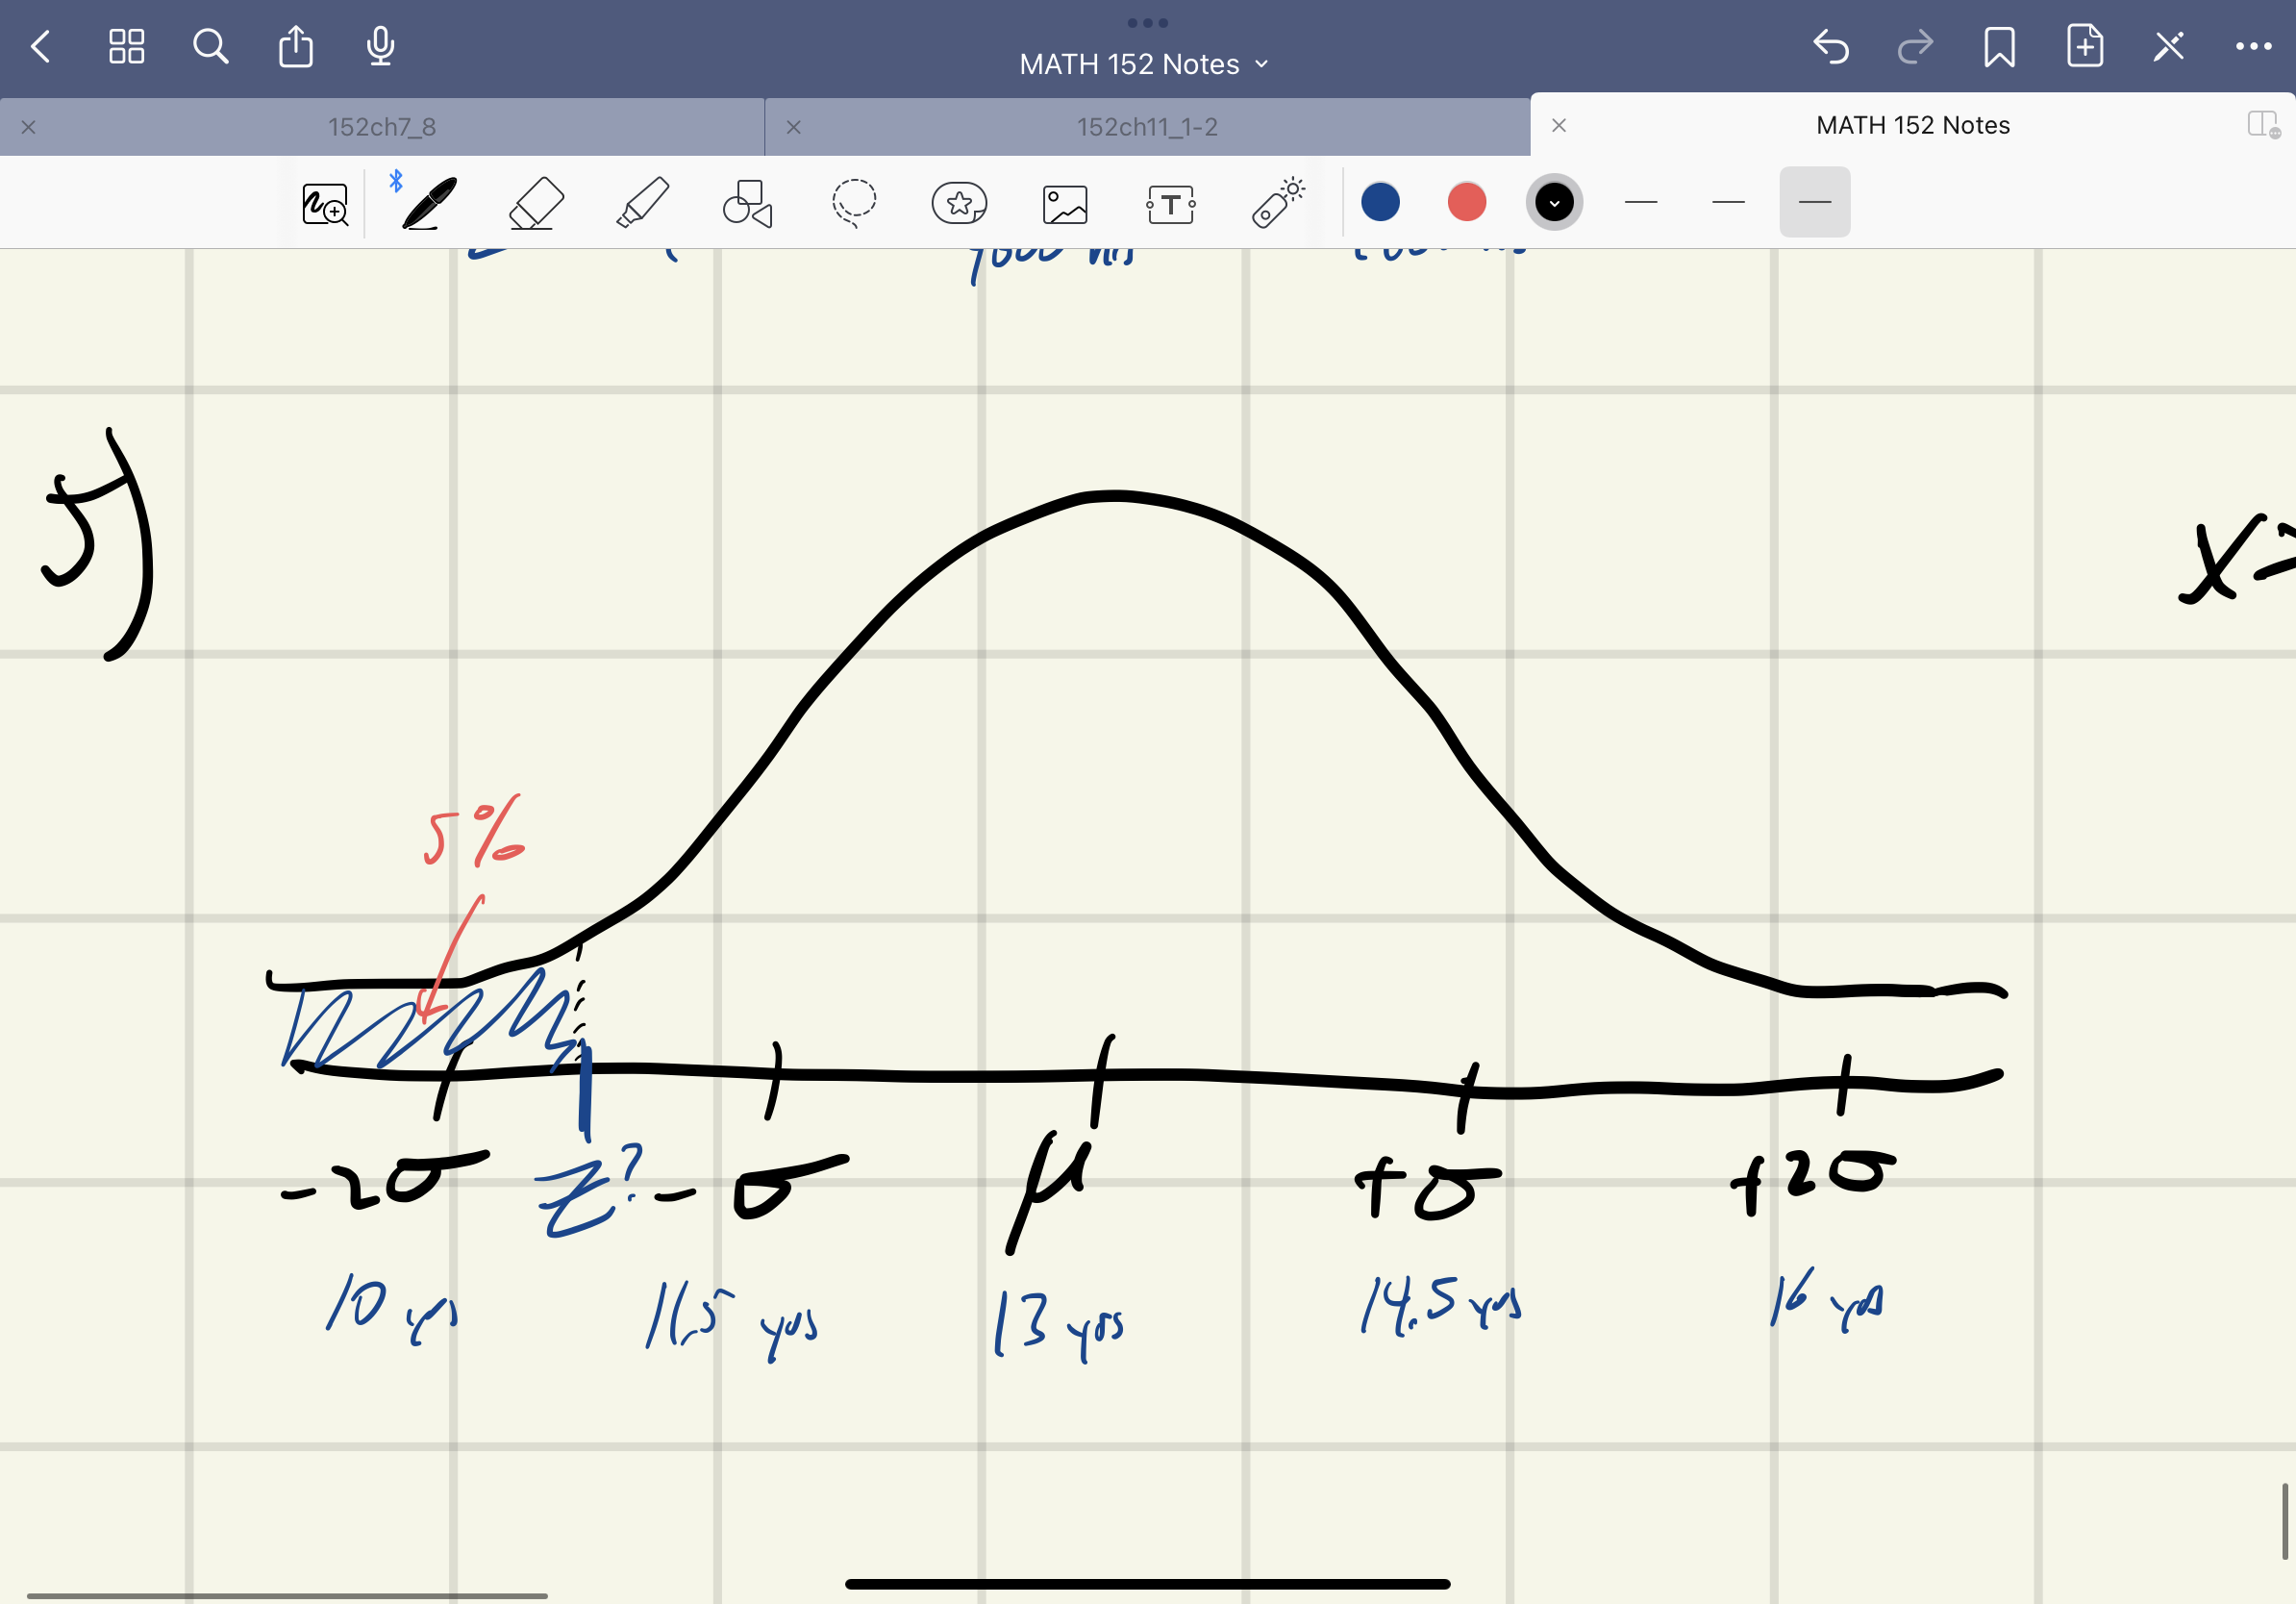 MATH 152 Notes
152ch7_8
152ch11_1-2
MATH 152 Notes
T
5)
X=
5%
-2σ z? -σ μ +σ +2σ
10 yrs 11.5 yrs 13 yrs 14.5 yrs 16 yrs